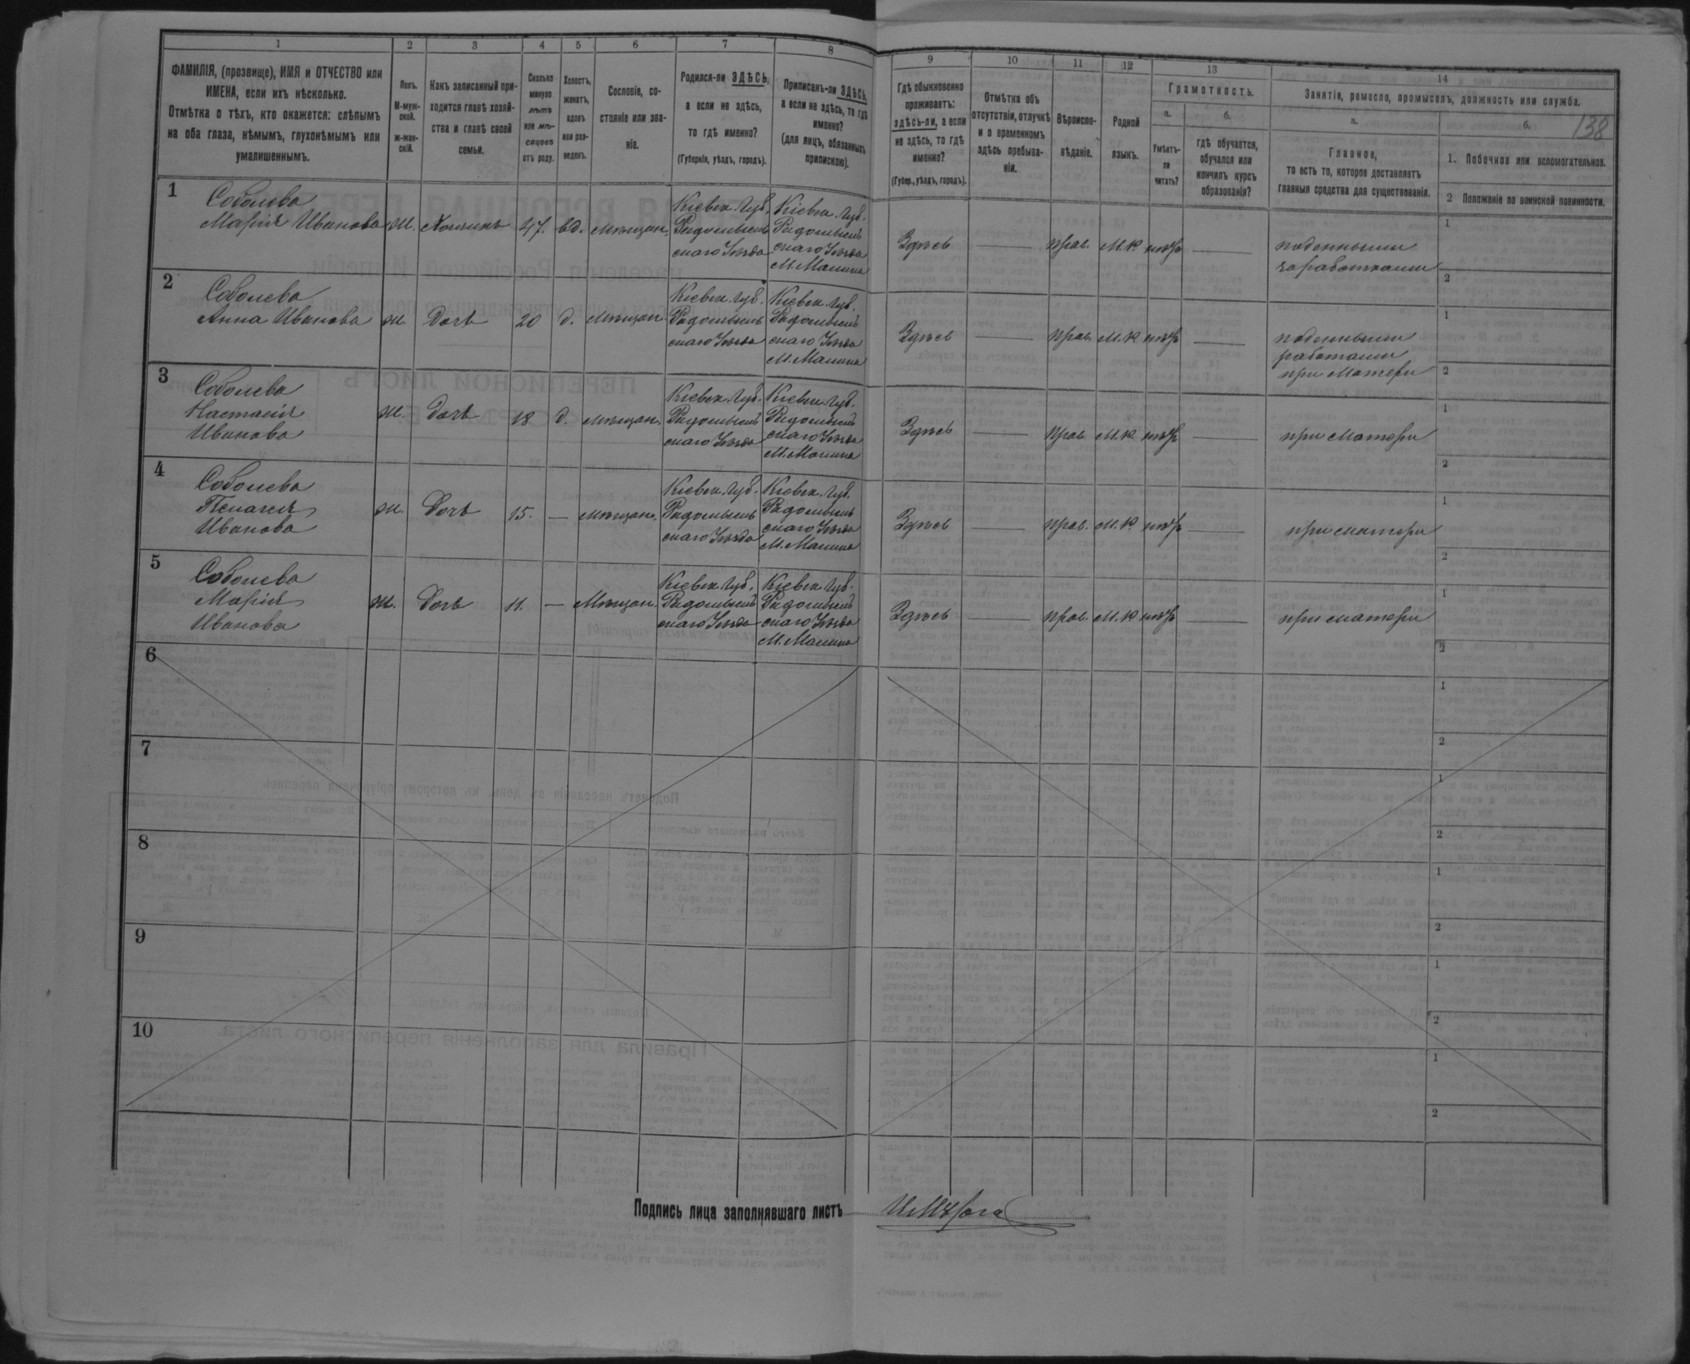 1
2
3
4
5
6
7
8
9
10
11
12
13
14
138
ФАМИЛІЯ, (прозвище), ИМЯ и ОТЧЕСТВО или
ИМЕНА, если ихъ нѣсколько.
Отмѣтка о тѣхъ, кто окажется: слѣпымъ
на оба глаза, нѣмымъ, глухонѣмымъ или
умалишеннымъ.
Полъ.
М-муж-
ской.
ж-жен-
скій.
Какъ записанный при-
ходится главѣ хозяй-
ства и главѣ своей
семьи.
Сколько
минуло
лѣтъ
или мѣ-
сяцевъ
отъ роду.
Холостъ,
женатъ,
вдовъ
или раз-
веденъ.
Сословіе, со-
стояніе или зва-
ніе.
Родился-ли ЗДѢСЬ,
а если не здѣсь,
то гдѣ именно?
(Губернія, уѣздъ, городъ).
Приписанъ-ли ЗДѢСЬ,
а если не здѣсь, то гдѣ
именно?
(для лицъ, обязанныхъ
припискою).
Гдѣ обыкновенно
проживаетъ:
здѣсь-ли, а если
не здѣсь, то гдѣ
именно?
(Губер., уѣздъ, городъ).
Отмѣтка объ
отсутствіи, отлучкѣ
и о временномъ
здѣсь пребыва-
ніи.
Вѣроиспо-
вѣданіе.
Родной
языкъ.
Грамотность.
а.
Умѣетъ-
ли
читать?
б.
гдѣ обучается,
обучался или
кончилъ курсъ
образованія?
Занятіе, ремесло, промыселъ, должность или служба.
а.
Главное,
то есть то, которое доставляетъ
главныя средства для существованія.
б.
1. Побочное или вспомогательное.
2 Положеніе по воинской повинности.
1
Соболева
Марія Иванова
ж.
Хозяинъ
47.
вд.
мѣщан.
Кіевск. губ.
Радомысль
скаго Уѣзда
Кіевск. губ.
Радомысль
скаго Уѣзда
М. Малина
Здѣсь
прав.
М.Р.
нѣтъ
поденными
заработками
1
2
2
Соболева
Анна Иванова
ж.
Дочь
20
д.
мѣщан.
Кіевск. губ.
Радомысль
скаго Уѣзда
Кіевск. губ.
Радомысль
скаго Уѣзда
М. Малина
Здѣсь
прав.
М.Р.
нѣтъ
поденными
работами
при матери
1
2
3
Соболева
Настасія
Иванова
ж.
Дочь
18
д.
мѣщан.
Кіевск. губ.
Радомысль
скаго Уѣзда
Кіевск. губ.
Радомысль
скаго Уѣзда
М. Малина
Здѣсь
прав.
М.Р.
нѣтъ
при матери
1
2
4
Соболева
Пелагея
Иванова
ж.
Дочь
15.
—
мѣщан.
Кіевск. губ.
Радомысль
скаго Уѣзда
Кіевск. губ.
Радомысль
скаго Уѣзда
М. Малина
Здѣсь
прав.
М.Р.
нѣтъ
при матери
1
2
5
Соболева
Марія
Иванова
ж.
Дочь
11.
—
Мѣщан.
Кіевск. губ.
Радомысль
скаго Уѣзда
Кіевск. губ.
Радомысль
скаго Уѣзда
М. Малина
Здѣсь
прав.
М.Р.
нѣтъ
при матери
1
2
6
1
2
7
1
2
8
1
2
9
1
2
10
1
2
Подпись лица заполнявшаго листъ